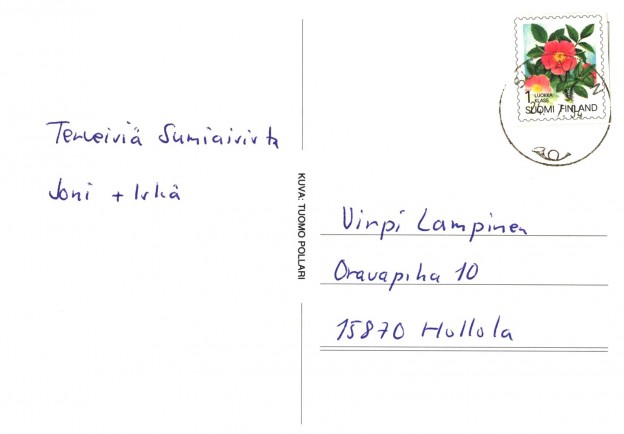 1 LUOKKA
KLASS
SUOMI FINLAND
Terveiviä Sumiaisista
Joni + Irkä
KUVA: TUOMO POLLARI
Virpi Lampinen
Oravapiha 10
15870 Hollola